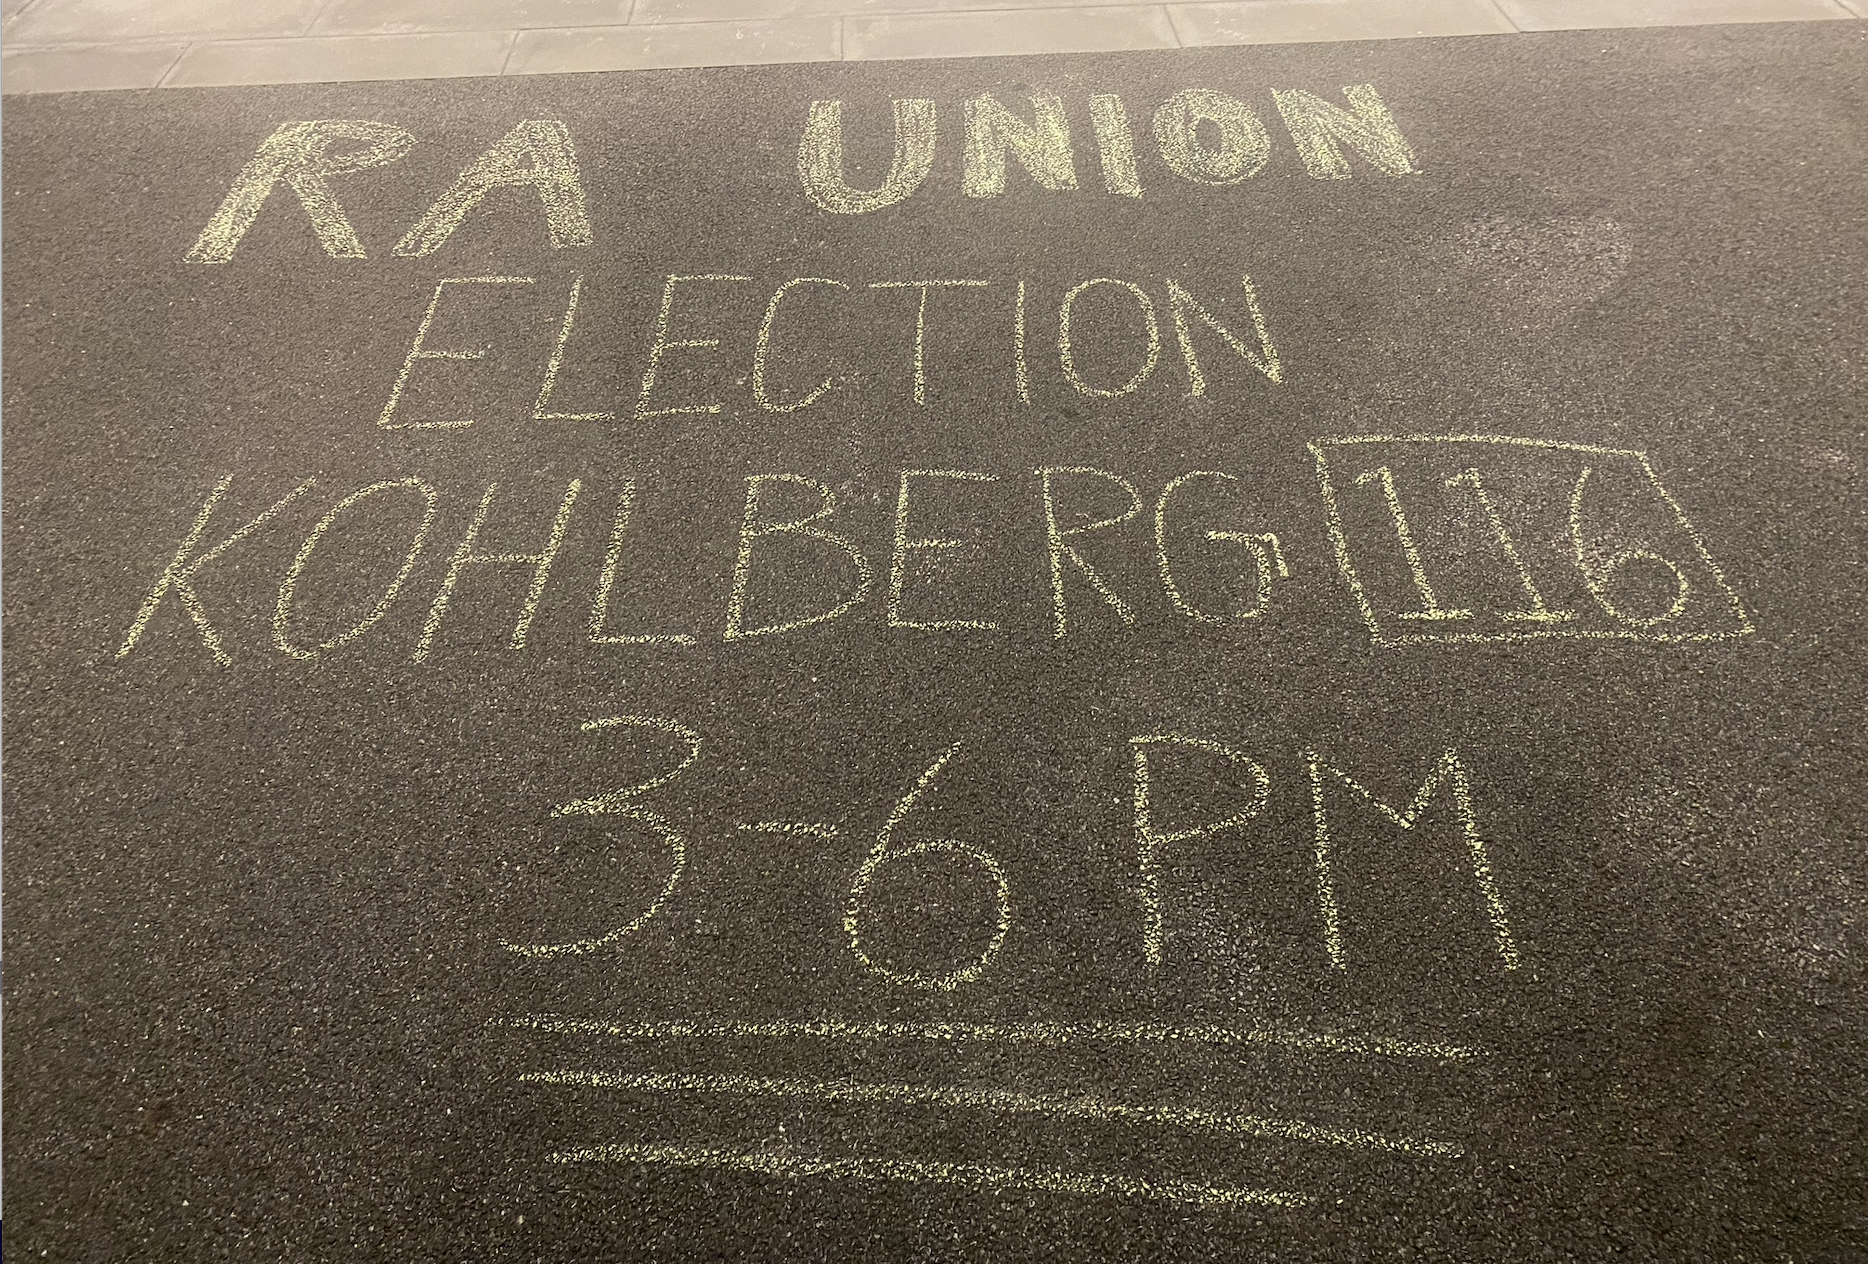 RA UNION
ELECTION
KOHLBERG 116
3-6 PM